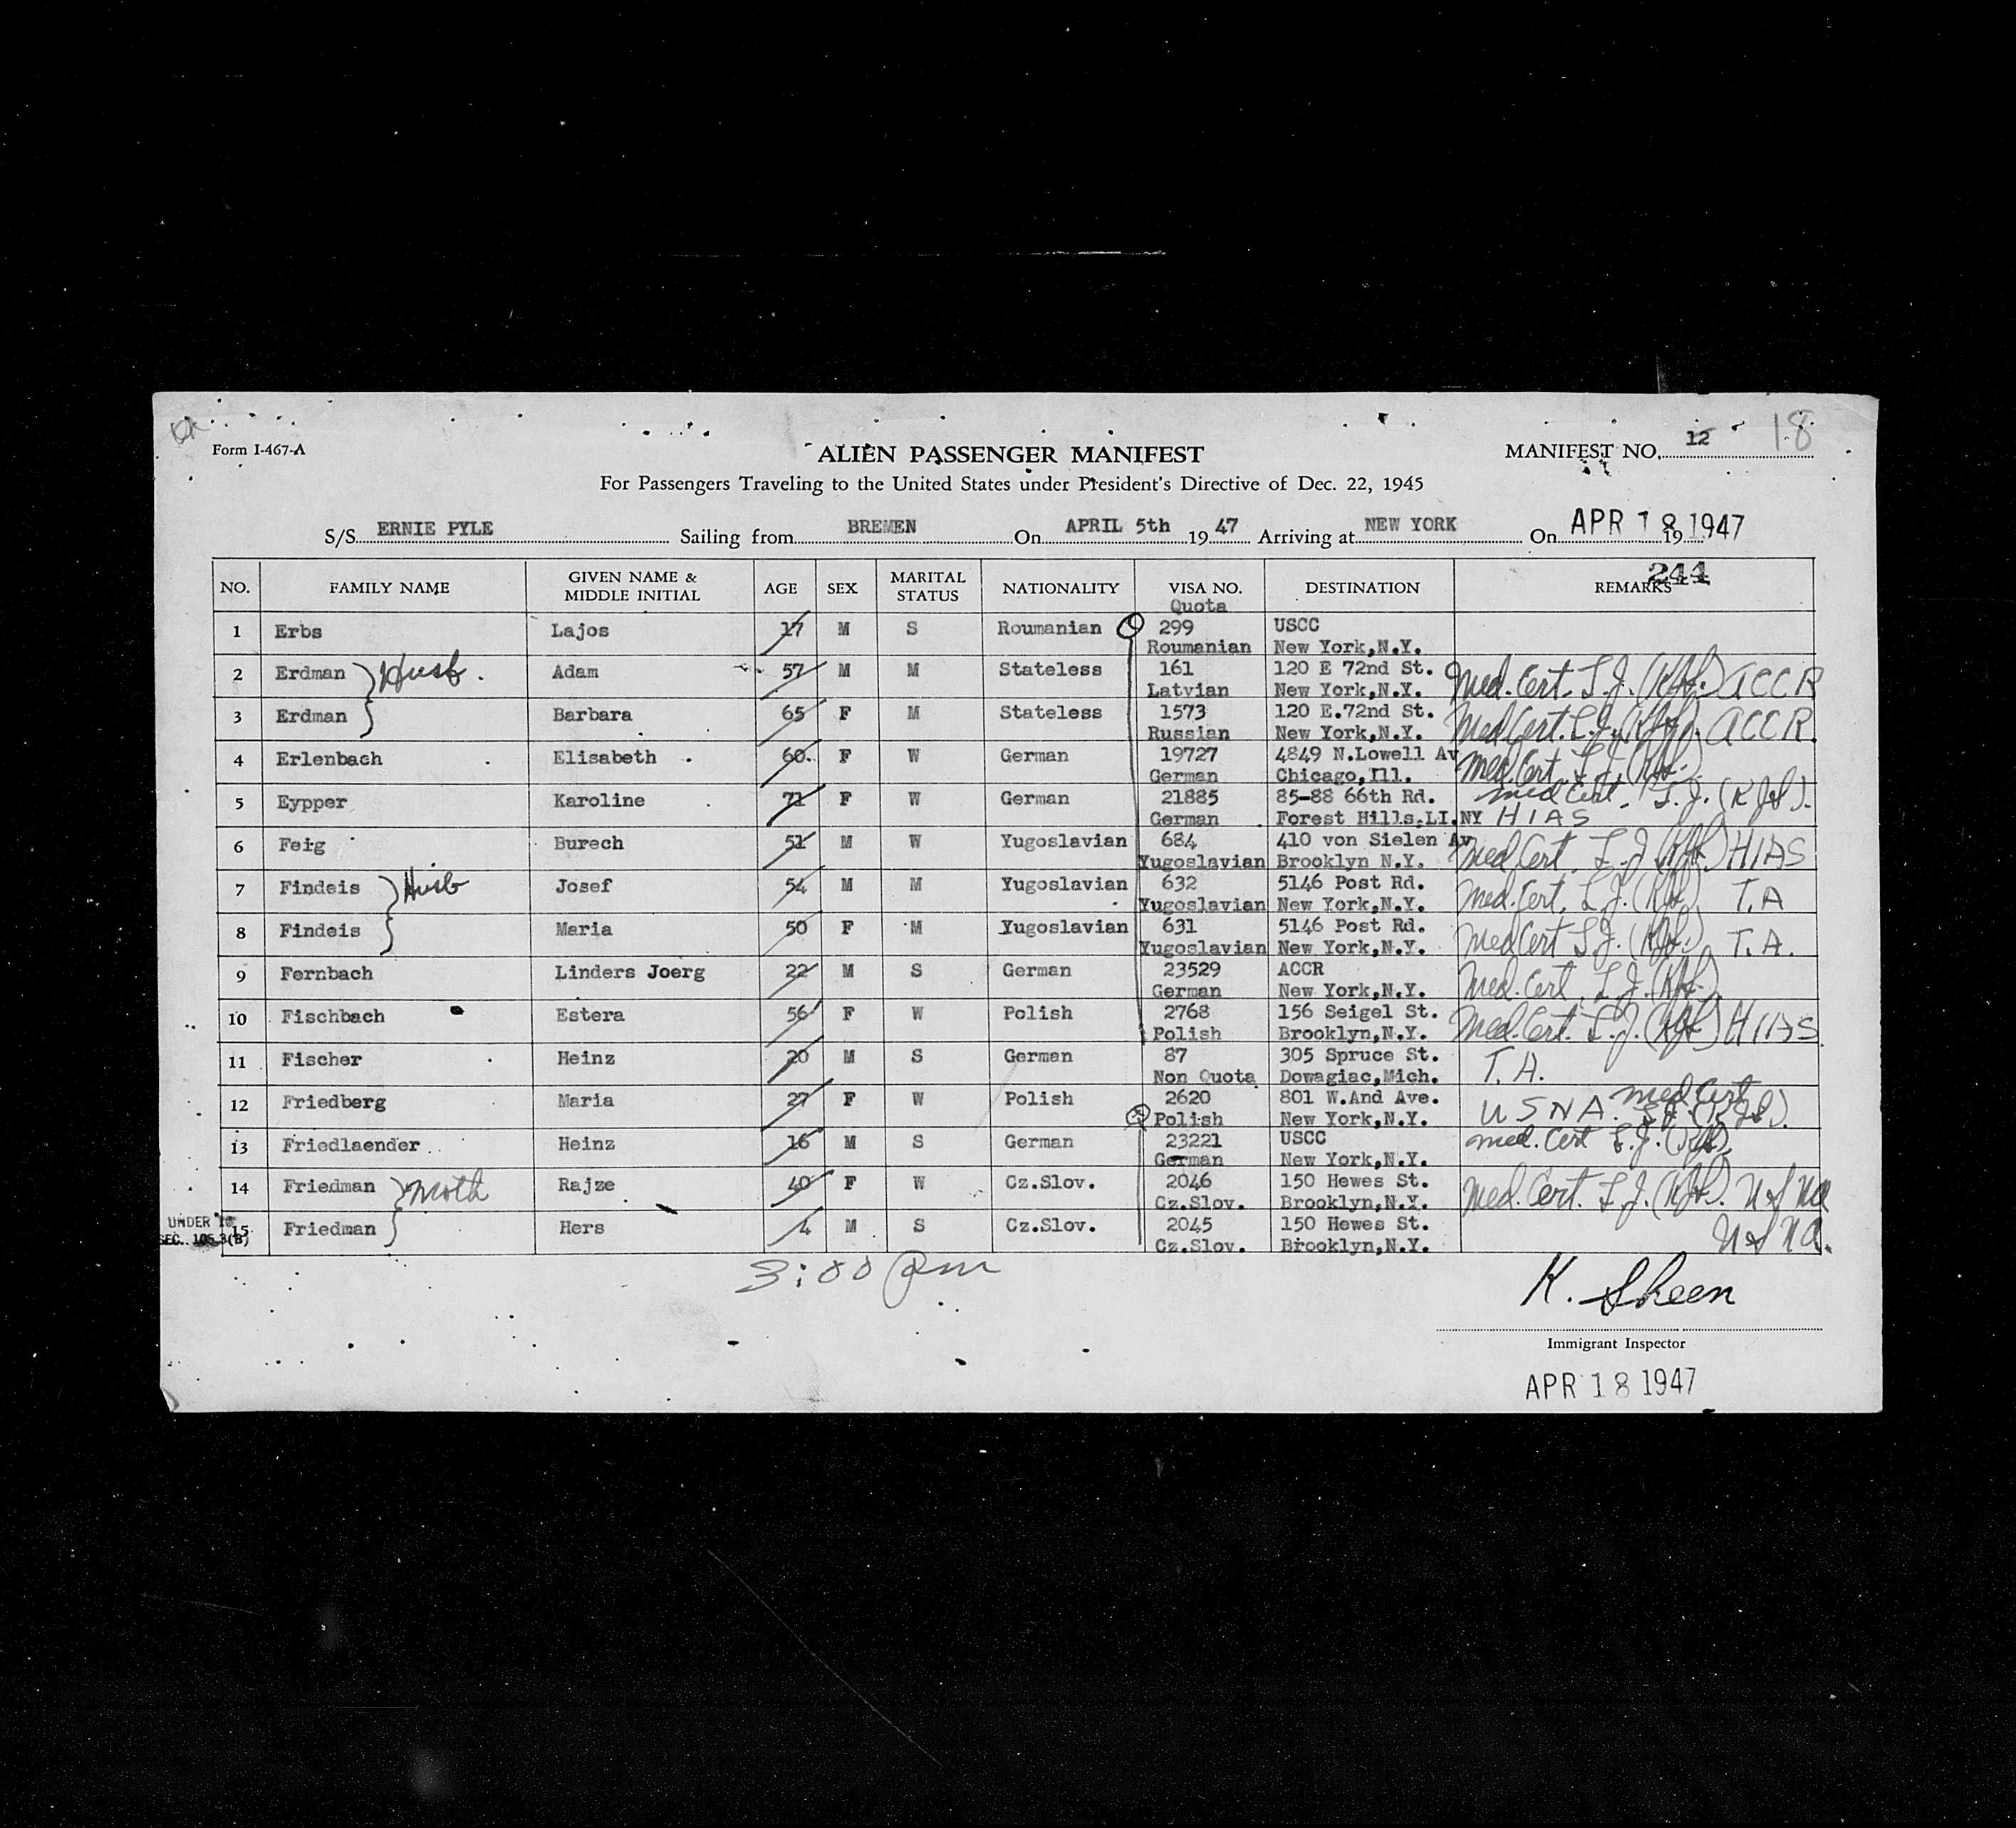 18
Form I-467-A
ALIEN PASSENGER MANIFEST
MANIFEST NO. 12
For Passengers Traveling to the United States under President's Directive of Dec. 22, 1945
S/S ERNIE PYLE Sailing from BREMEN On APRIL 5th 19 47 Arriving at NEW YORK On APR 18 1947 19
244
NO. FAMILY NAME GIVEN NAME & MIDDLE INITIAL AGE SEX MARITAL STATUS NATIONALITY VISA NO. DESTINATION REMARKS
Quota
1 Erbs Lajos 17 M S Roumanian 299 USCC
Roumanian New York,N.Y.
2 Erdman Husb. Adam 57 M M Stateless 161 120 E 72nd St. Med. Cert. ACCR
Latvian New York,N.Y.
3 Erdman Barbara 65 F M Stateless 1573 120 E.72nd St. Med Cert. ACCR.
Russian New York,N.Y.
4 Erlenbach Elisabeth 60 F W German 19727 4849 N.Lowell Av Med. Cert
German Chicago,Ill.
5 Eypper Karoline 71 F W German 21885 85-88 66th Rd. med Cert.
German Forest Hills,LI.NY HIAS
6 Feig Burech 51 M W Yugoslavian 684 410 von Sielen Av Med. Cert. HIAS
Yugoslavian Brooklyn N.Y.
7 Findeis Husb Josef 54 M M Yugoslavian 632 5146 Post Rd. Med. Cert. T.A
Yugoslavian New York,N.Y.
8 Findeis Maria 50 F M Yugoslavian 631 5146 Post Rd. Med Cert T.A.
Yugoslavian New York,N.Y.
9 Fernbach Linders Joerg 22 M S German 23529 ACCR Med. Cert.
German New York,N.Y.
10 Fischbach Estera 56 F W Polish 2768 156 Seigel St. Med. Cert. HIAS
Polish Brooklyn,N.Y.
11 Fischer Heinz 20 M S German 87 305 Spruce St. T.A.
Non Quota Dowagiac,Mich.
12 Friedberg Maria 27 F W Polish 2620 801 W.And Ave. med Cert
Polish New York,N.Y. USNA.
13 Friedlaender Heinz 16 M S German 23221 USCC med. Cert
German New York,N.Y.
14 Friedman Moth Rajze 40 F W Cz.Slov. 2046 150 Hewes St. Med. Cert.
Cz.Slov. Brooklyn,N.Y.
UNDER
15 Friedman Hers 4 M S Cz.Slov. 2045 150 Hewes St.
Cz.Slov. Brooklyn,N.Y.
3:00 Pm
K. Sheen
Immigrant Inspector
APR 18 1947